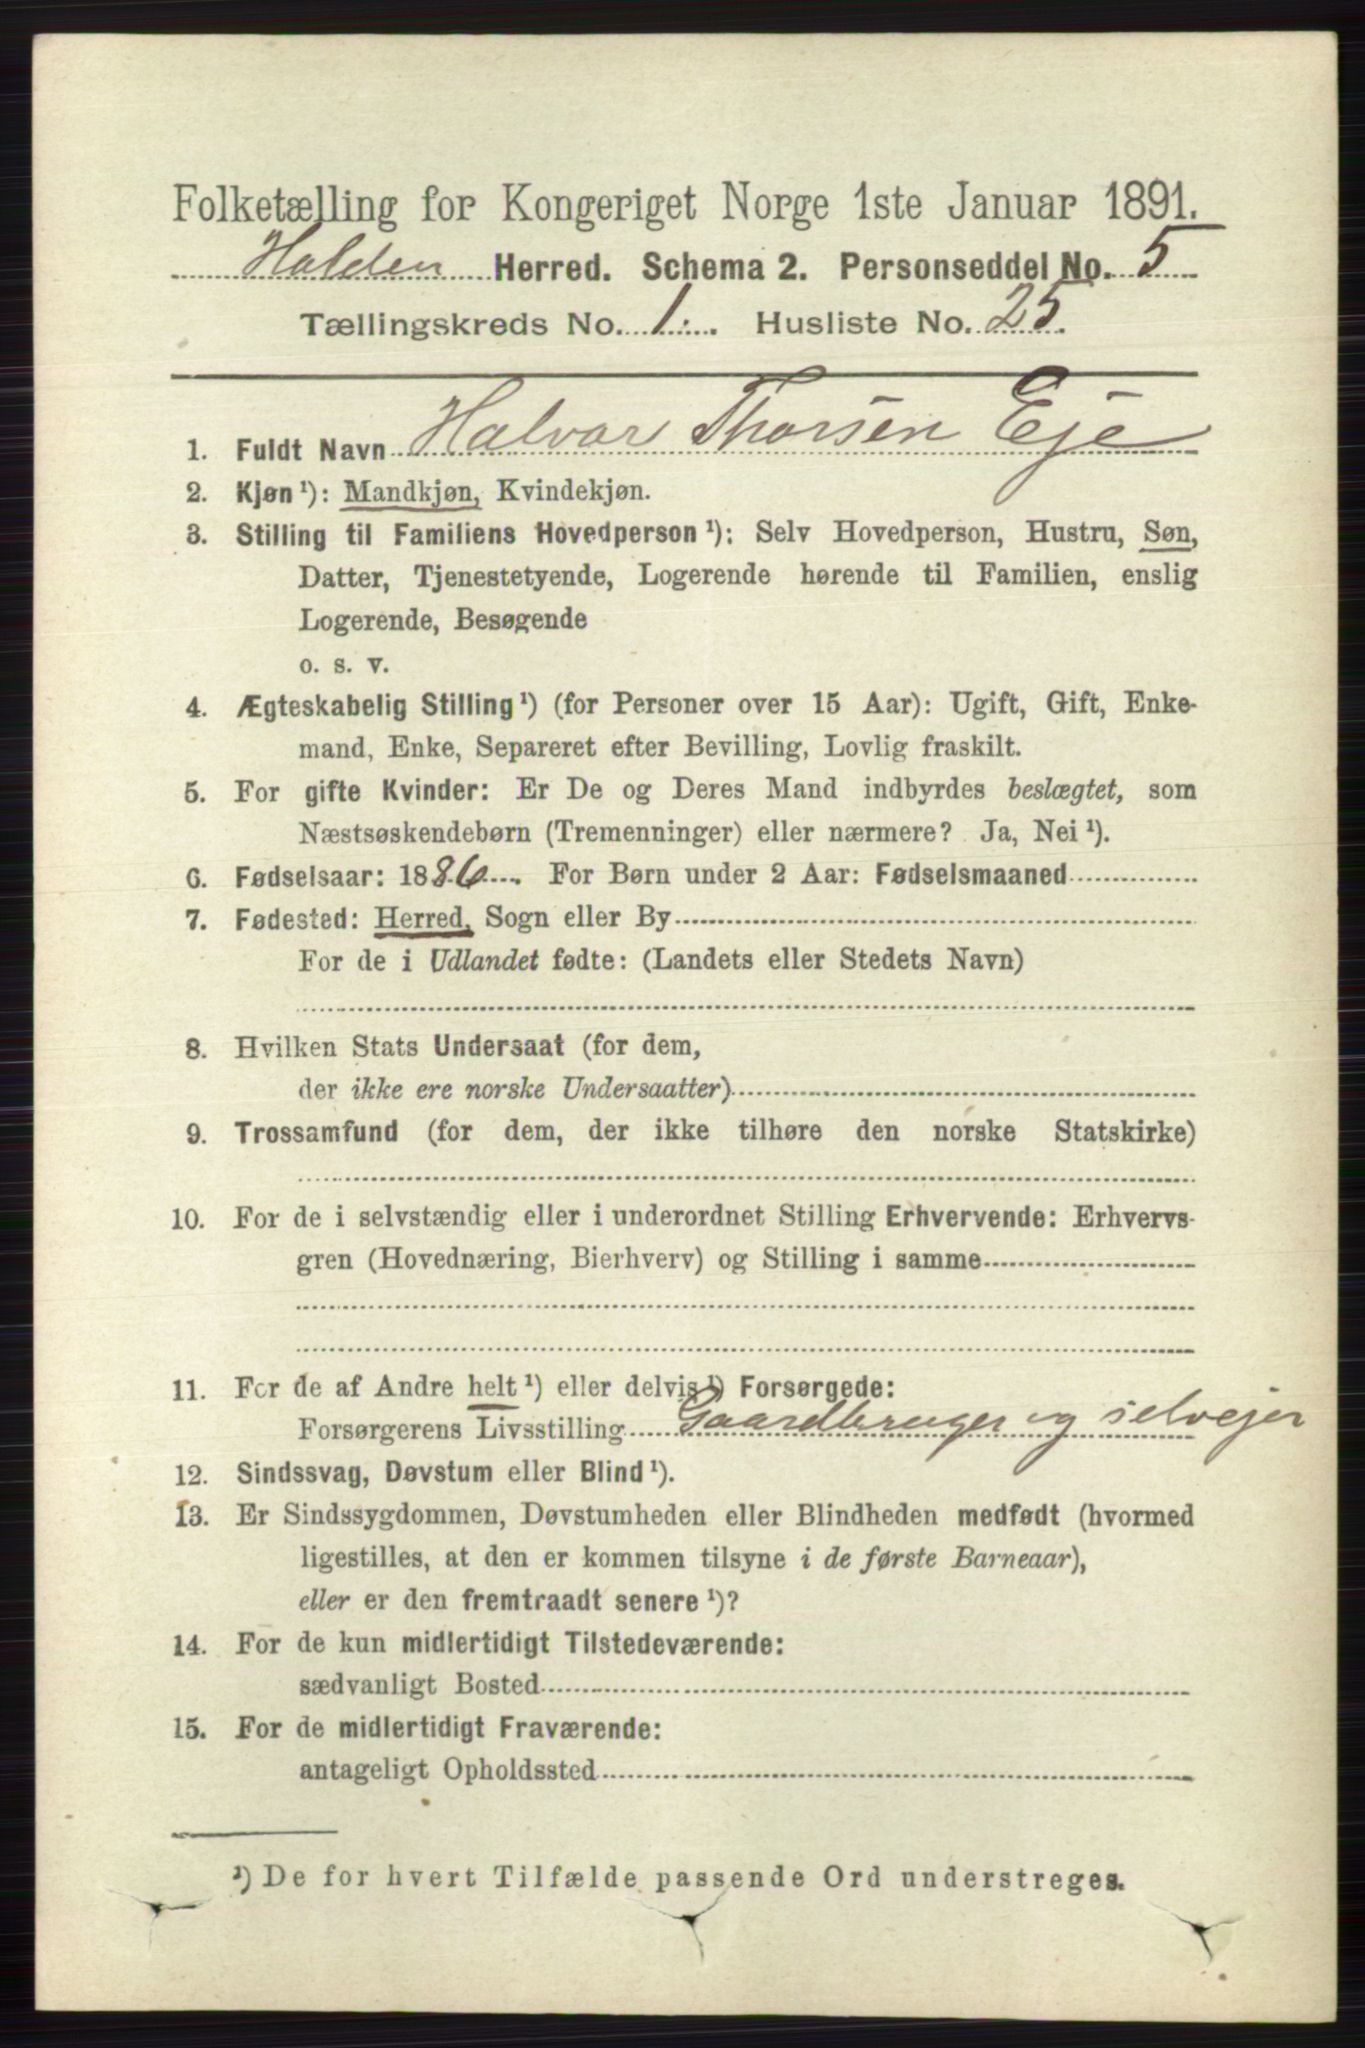 Folketælling for Kongeriget Norge 1ste Januar 1891.
Holden Herred. Schema 2. Personseddel No. 5
Tællingskreds No. 1. Husliste No. 25.
1. Fuldt Navn Halvor Thorsen Eje
2. Kjøn¹): Mandkjøn, Kvindekjøn.
3. Stilling til Familiens Hovedperson¹): Selv Hovedperson, Hustru, Søn,
Datter, Tjenestetyende, Logerende hørende til Familien, enslig
Logerende, Besøgende
o. s. v.
4. Ægteskabelig Stilling¹) (for Personer over 15 Aar): Ugift, Gift, Enke-
mand, Enke, Separeret efter Bevilling, Lovlig fraskilt.
5. For gifte Kvinder: Er De og Deres Mand indbyrdes beslægtet, som
Næstsøskendebørn (Tremenninger) eller nærmere? Ja, Nei¹).
6. Fødselsaar: 1886. For Børn under 2 Aar: Fødselsmaaned
7. Fødested: Herred, Sogn eller By
For de i Udlandet fødte: (Landets eller Stedets Navn)
8. Hvilken Stats Undersaat (for dem,
der ikke ere norske Undersaatter)
9. Trossamfund (for dem, der ikke tilhøre den norske Statskirke)
10. For de i selvstændig eller i underordnet Stilling Erhvervende: Erhvervs-
gren (Hovednæring, Bierhverv) og Stilling i samme
11. For de af Andre helt¹) eller delvis¹) Forsørgede:
Forsørgerens Livsstilling Gaardbruger og selvejer
12. Sindssvag, Døvstum eller Blind¹).
13. Er Sindssygdommen, Døvstumheden eller Blindheden medfødt (hvormed
ligestilles, at den er kommen tilsyne i de første Barneaar),
eller er den fremtraadt senere¹)?
14. For de kun midlertidigt Tilstedeværende:
sædvanligt Bosted
15. For de midlertidigt Fraværende:
antageligt Opholdssted
¹) De for hvert Tilfælde passende Ord understreges.